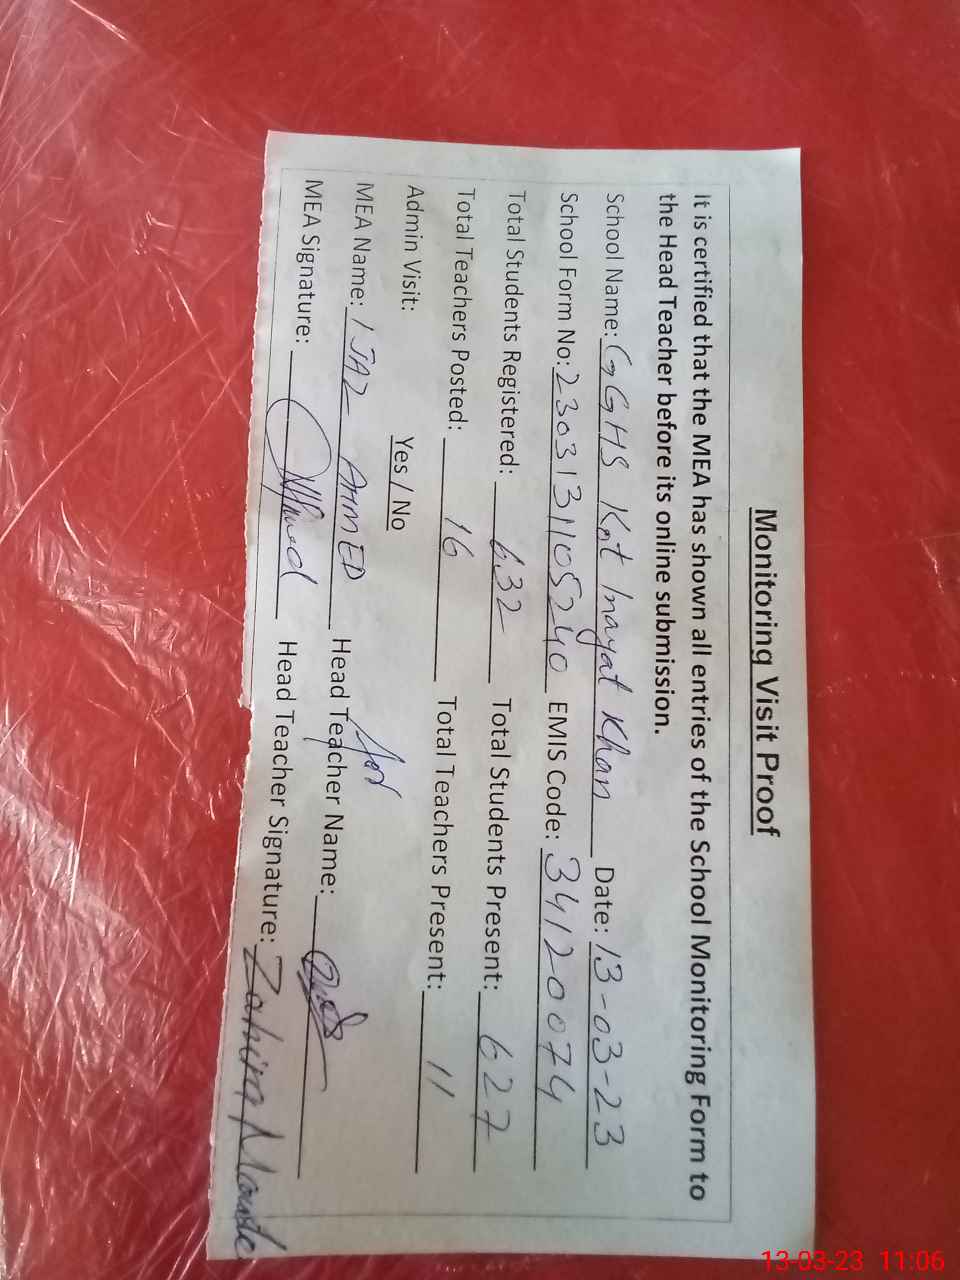 Monitoring Visit Proof
It is certified that the MEA has shown all entries of the School Monitoring Form to
the Head Teacher before its online submission.
School Name: GGHS Kot Inayat Khan Date: 13-03-23
School Form No: 2303131105240 EMIS Code: 34120074
Total Students Registered: 632 Total Students Present: 627
Total Teachers Posted: 16 Total Teachers Present: 11
Admin Visit: Yes / No
MEA Name: IJAZ AHMED Head Teacher Name:
MEA Signature: Head Teacher Signature:
13-03-23 11:06